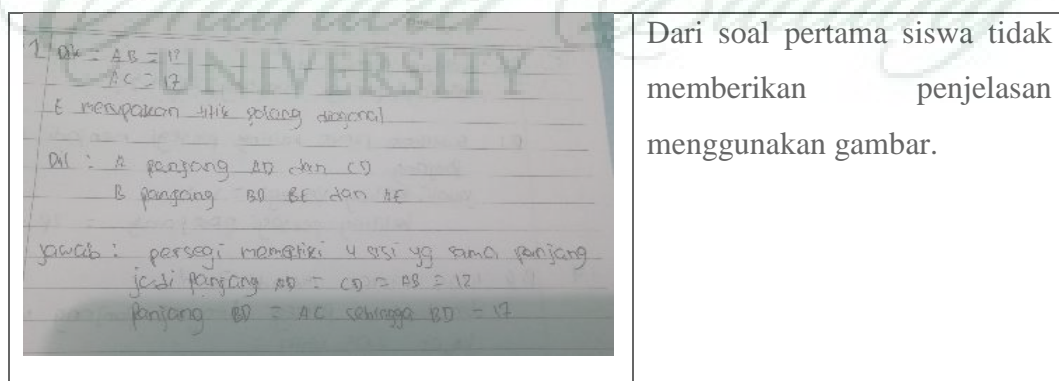 UNIVERSITY
1. Dik = AB = 12
AC = 17
E merupakan titik potong diagonal
Dit : A panjang AD dan CD
B panjang BD BE dan AE
Jawab : persegi memiliki 4 sisi yg sama panjang
jadi panjang AD = CD = AB = 12
Panjang BD = AC sehingga BD = 17
Dari soal pertama siswa tidak
memberikan penjelasan
menggunakan gambar.